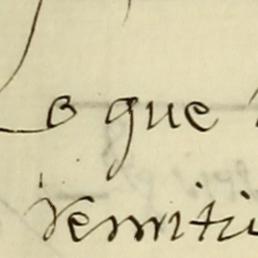 Lo que
remiti